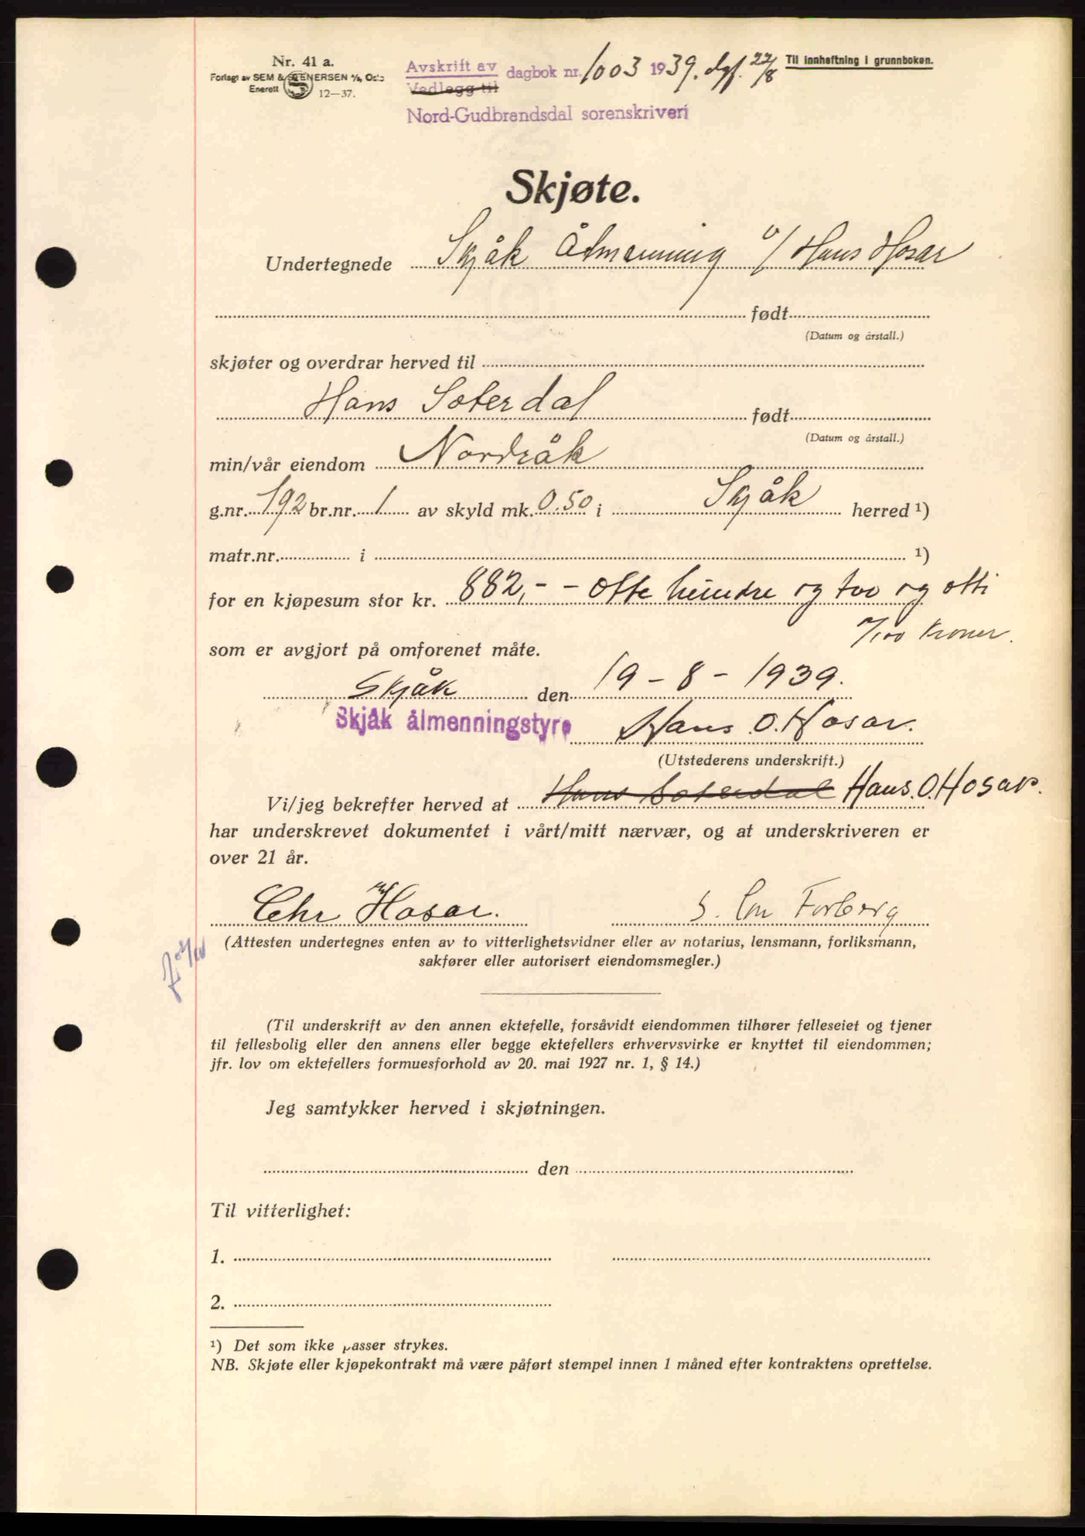 Nr. 41 a.
Forlagt av SEM & STENERSEN A/S, Oslo
Enerett 12—37.
Avskrift av
Vedlegg til
dagbok nr. 1003 1939. dgf. 22/8
Til innheftning i grunnboken.
Nord-Gudbrandsdal sorenskriveri
Skjøte.
Undertegnede Skjåk Ålmenning v/ Hans Hosar
født
(Datum og årstall.)
skjøter og overdrar herved til
Hans Soterdal født
(Datum og årstall.)
min/vår eiendom Nordråk
g.nr. 192 br.nr. 1 av skyld mk. 0.50 i Skjåk herred ¹)
matr.nr. i ¹)
for en kjøpesum stor kr. 882,- - otte hundre og too og otti
°/100 Kroner.
som er avgjort på omforenet måte.
Skjåk den 19 - 8 - 1939.
Skjåk ålmenningstyre Hans O. Hosar.
(Utstederens underskrift.)
Vi/jeg bekrefter herved at Hans Soterdal Hans. O. Hosar.
har underskrevet dokumentet i vårt/mitt nærvær, og at underskriveren er
over 21 år.
Chr Hosar. Forberg
(Attesten undertegnes enten av to vitterlighetsvidner eller av notarius, lensmann, forliksmann,
sakfører eller autorisert eiendomsmegler.)
(Til underskrift av den annen ektefelle, forsåvidt eiendommen tilhører felleseiet og tjener
til fellesbolig eller den annens eller begge ektefellers erhvervsvirke er knyttet til eiendommen;
jfr. lov om ektefellers formuesforhold av 20. mai 1927 nr. 1, § 14.)
Jeg samtykker herved i skjøtningen.
den
Til vitterlighet:
1.
2.
¹) Det som ikke passer strykes.
NB. Skjøte eller kjøpekontrakt må være påført stempel innen 1 måned efter kontraktens oprettelse.